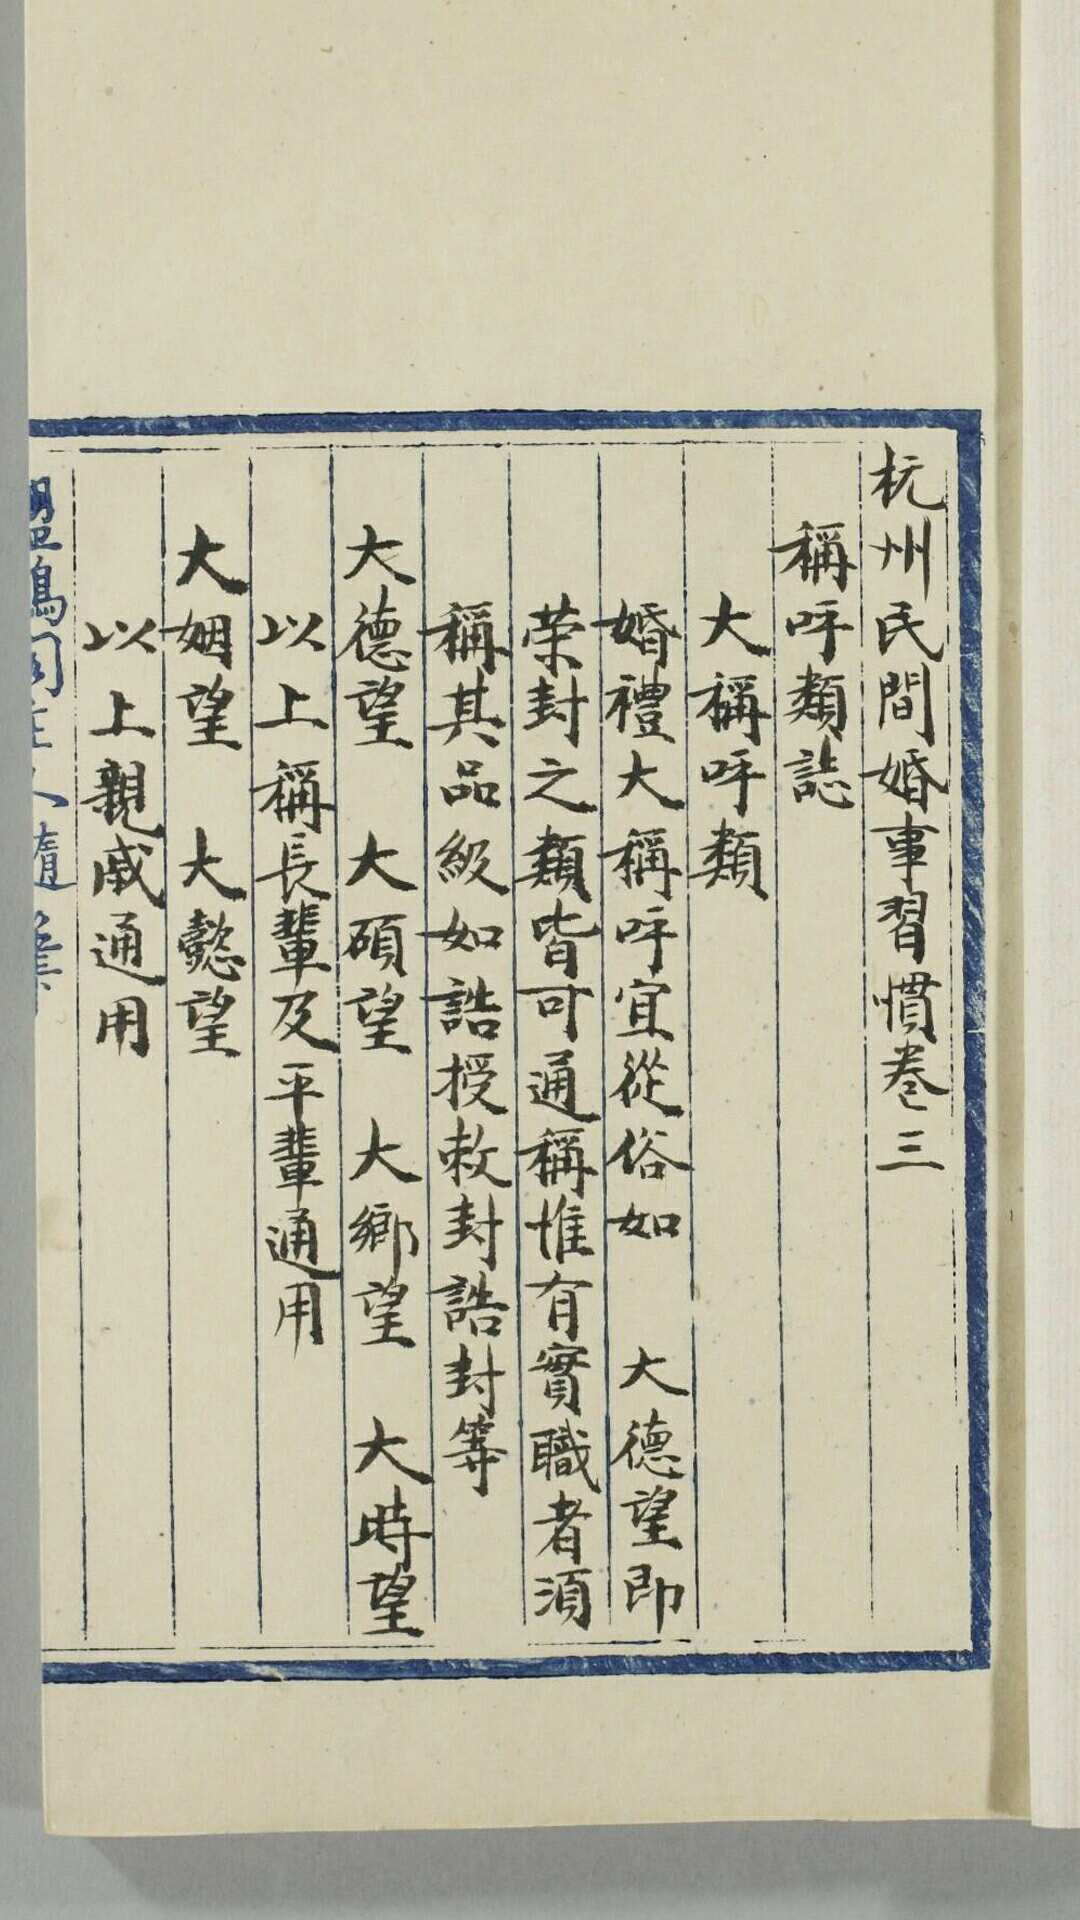 杭州民間婚事習慣卷三
稱呼類誌
大稱呼類
婚禮大稱呼宜從俗如 大德望即
荣封之類皆可通稱惟有實職者須
稱其品級如誥授敕封誥封等
大德望 大碩望 大鄉望 大時望
以上稱長輩及平輩通用
大姻望 大懿望
以上親戚通用